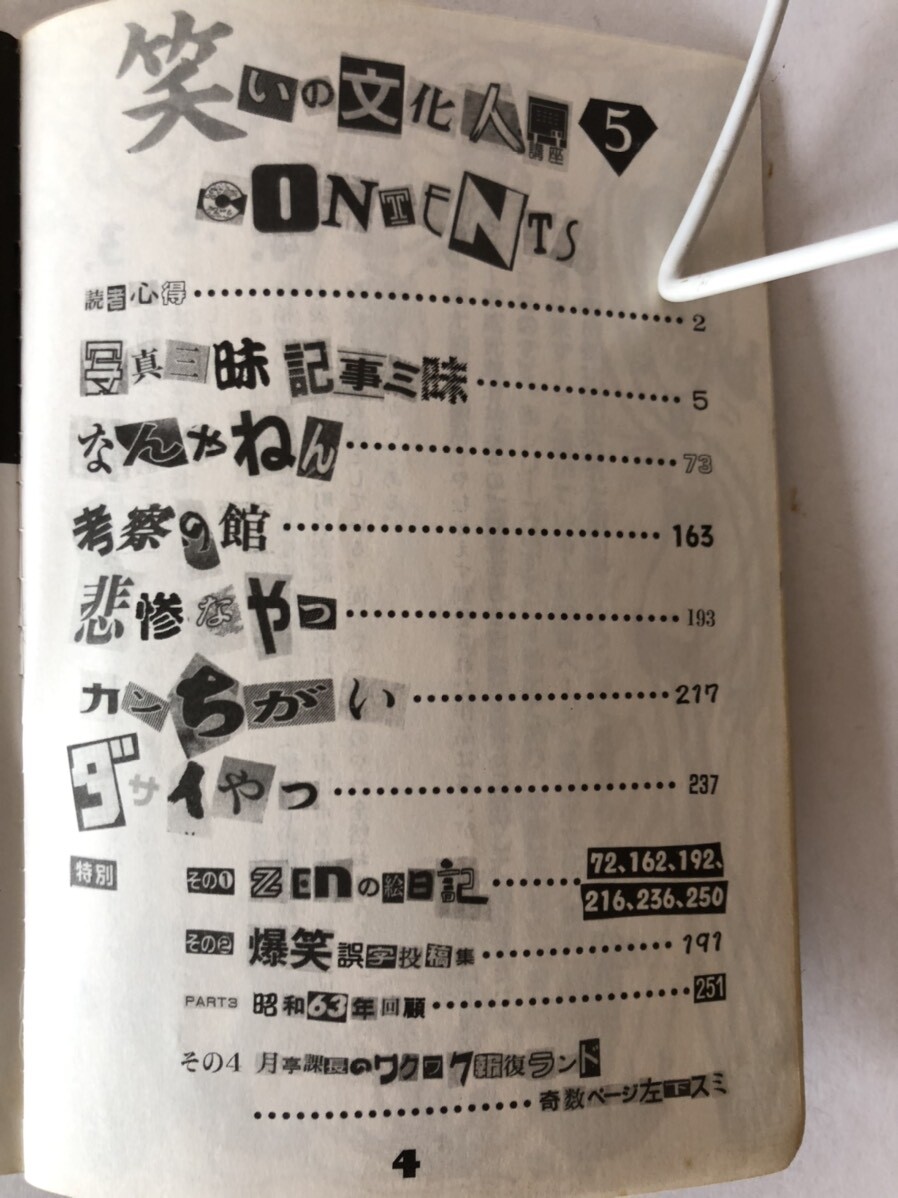 笑いの文化人講座 5
CONTENTS
読者心得 2
写真三昧 記事三昧 5
なんやねん 73
考察の館 163
悲惨なやつ 193
カンちがい 217
ダサイやつ 237
特別 その1 ZENの絵日記 72、162、192、
216、236、250
その2 爆笑誤字投稿集 191
PART3 昭和63年回顧 251
その4 月亭課長のワクワク報復ランド
奇数ページ左下スミ
4